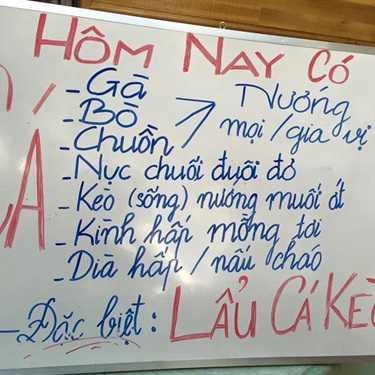 HÔM NAY CÓ
- Gà
- Bò
- Chuồn
Nướng
mọi / gia vị
- Nục chuối đuôi đỏ
- Kèo (sống) nướng muối ớt
- Kình hấp mồng tơi
- Dìa hấp / nấu cháo
- Đặc biệt : LẨU CÁ KÈO